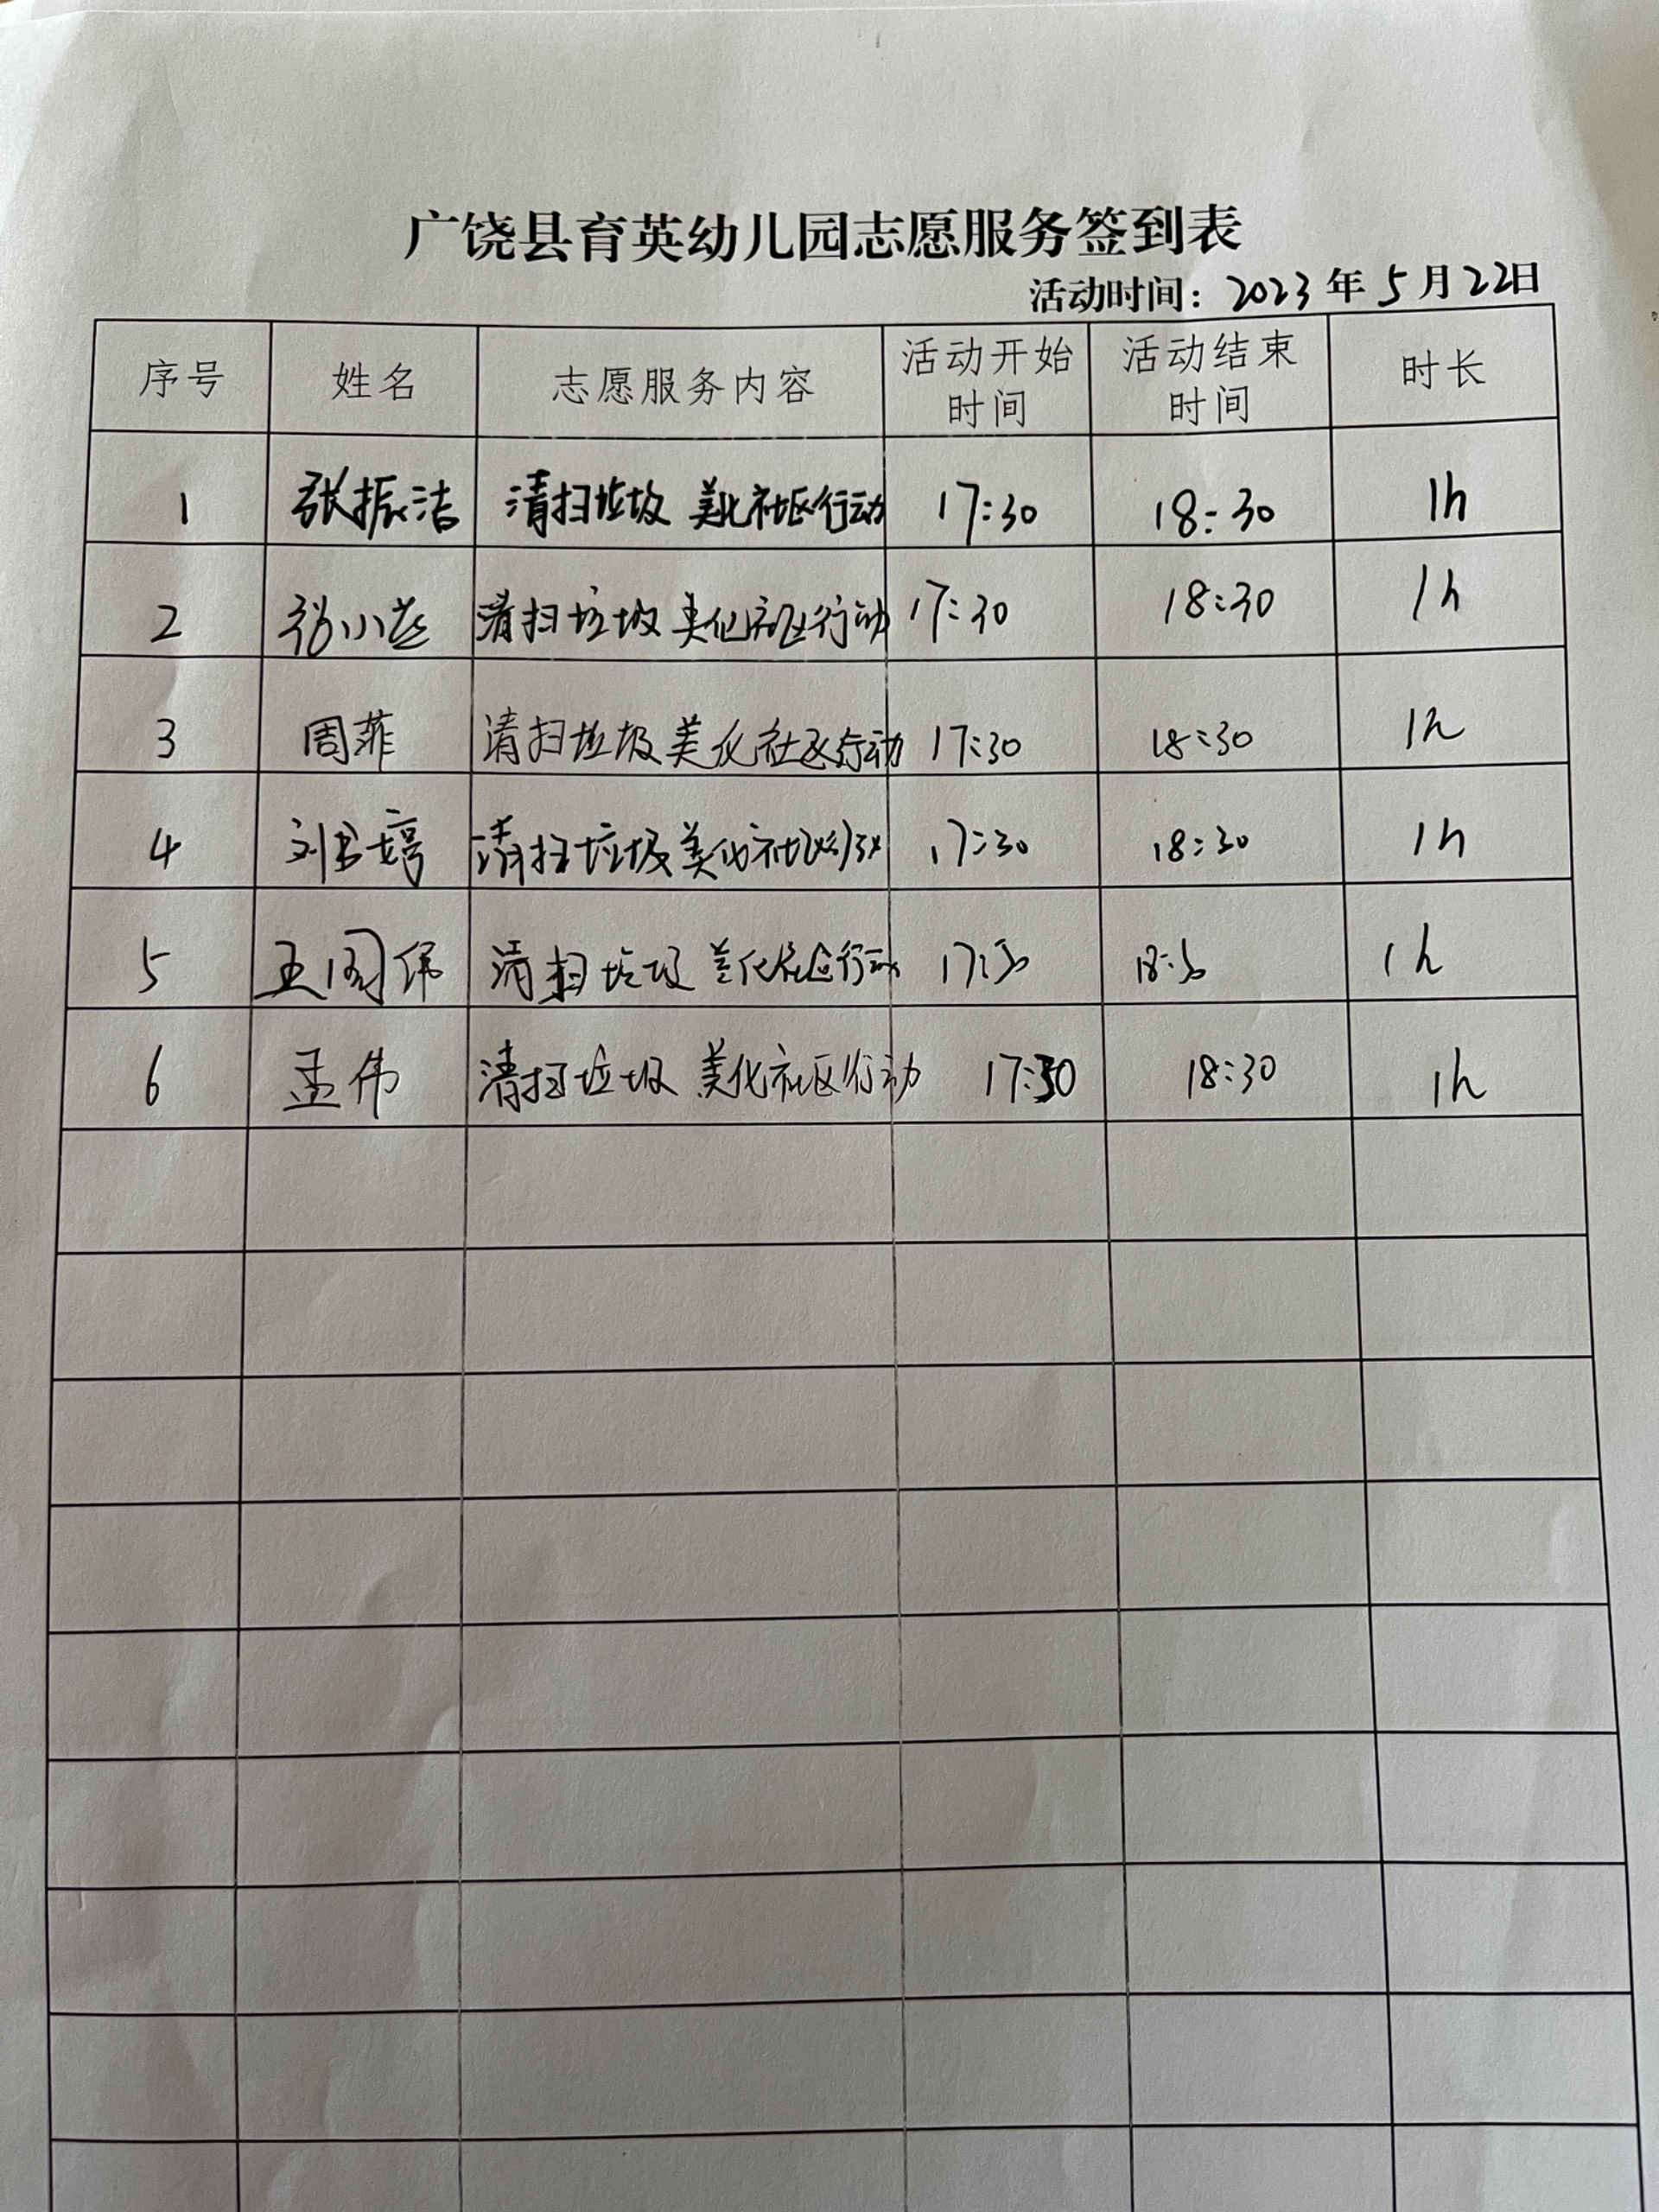 广饶县育英幼儿园志愿服务签到表
活动时间：2023年5月22日
序号 姓名 志愿服务内容 活动开始时间 活动结束时间 时长
1 张振洁 清扫垃圾 美化社区行动 17:30 18:30 1h
2 清扫垃圾 美化社区行动 17:30 18:30 1h
3 周菲 清扫垃圾美化社区行动 17:30 18:30 1h
4 清扫垃圾美化社区行动 17:30 18:30 1h
5 清扫垃圾 美化社区行动 17:30 18:30 1h
6 孟伟 清扫垃圾 美化社区行动 17:30 18:30 1h